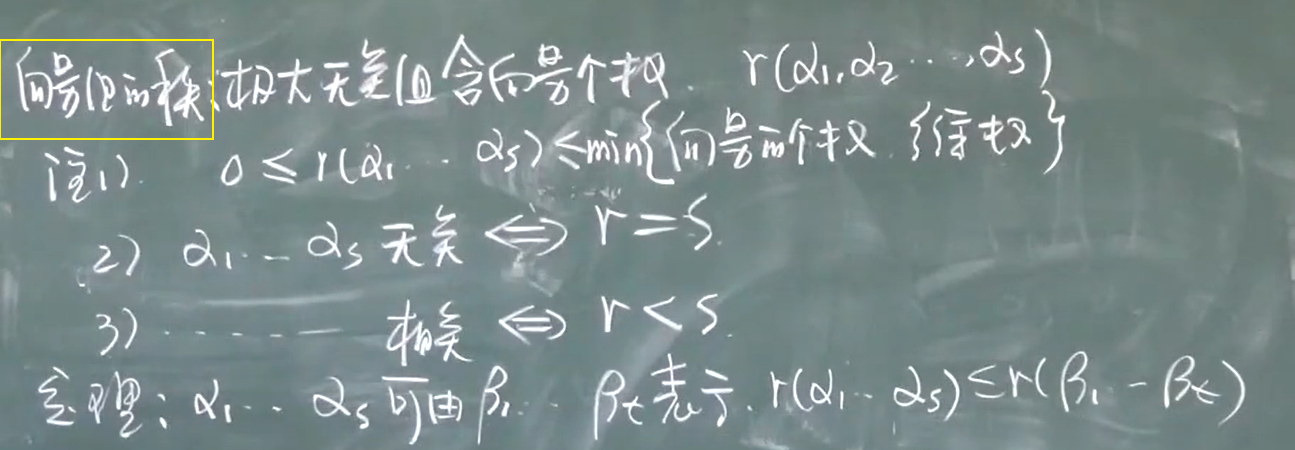 向量组的秩:极大无关组含向量个数. r(α₁,α₂…,αs)
注1). 0≤r(α₁…αs)≤min{向量的个数.维数}
2) α₁…αs 无关 ⇔ r=s.
3) ……… 相关 ⇔ r<s.
定理:α₁…αs可由β₁…βt表示.r(α₁…αs)≤r(β₁…βt)